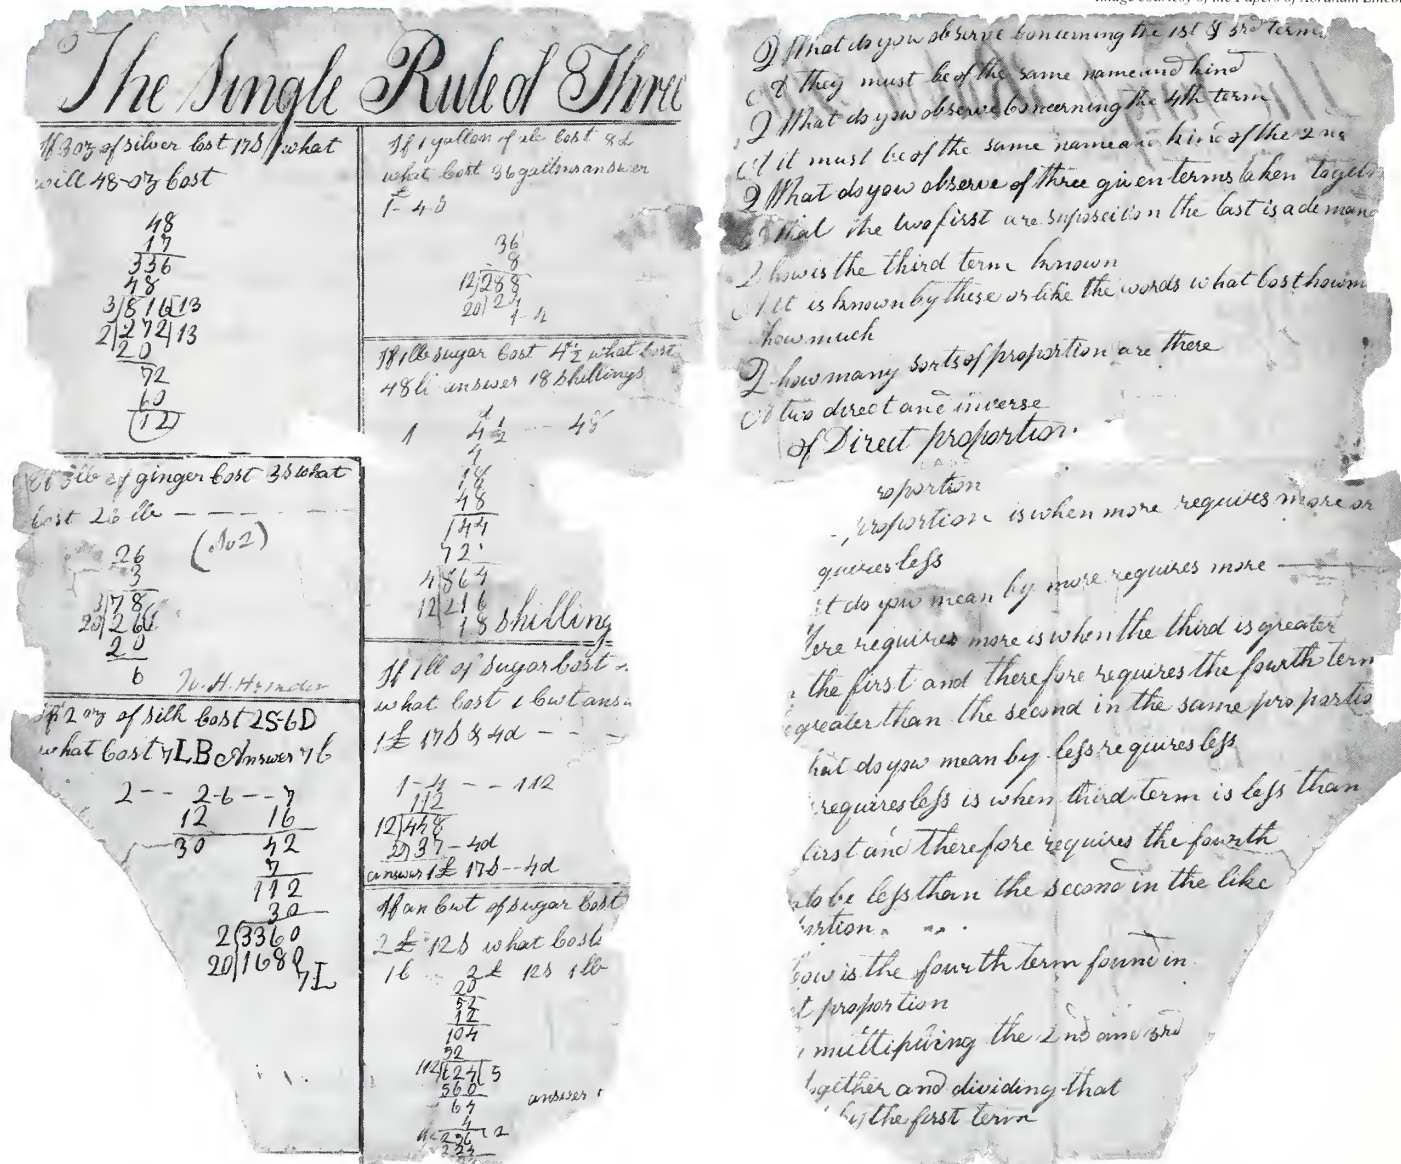 The Single Rule of Three
If 3 oz of silver cost 17s what
will 48 oz cost
48
17
336
48
3)816(13
2)272(13
20
72
60
(12)
of ginger cost 3s what
cost 26 lb - - - -
26
3
3)78
20)26(
20
6
If 2 oz of silk cost 2S-6D
what cost 7LB Answer 7 L
2-- 2-6--7
12 16
30 42
7
112
30
2)3360
20)168
7L
If 1 gallon of ale cost 8d
what cost 36 gallons answer
£
1-4s
36
8
12)288
20)24
1-4
If 1lb sugar cost 4½ what cost
48li answer 18 shillings
1 4½ -- 48
4
18
18
48
144
72
4)864
12)216
18 shilling
If 1ll of sugar cost
what cost 1 cwt
1£ 17s & 4d - - -
1-4 - - 112
112
12)448
20)37-4d
answer 1£ 17s--4d
If an cwt of sugar cost
2£ 12s what cost
16 2£ 12s 1lb
20
52
12
104
52
112)624(5
560
64
4
256(2
224
answer
Q What do you observe concerning the 1st & 3rd terms
A they must be of the same name and kind
Q What do you observe concerning the 4th term
A it must be of the same name and kind of the 2nd
Q What do you observe of three given terms taken
A that the two first are suposeition the last is a deman
Q how is the third term known
A it is known by these or like the words what cost how m
how much
Q how many sorts of proportion are there
A two direct and inverse
of Direct proportion.
roportion
proportion is when more requires more or
quires less
t do you mean by more requires more
ore requires more is when the third is greater
the first and therefore requires the fourth term
greater than the second in the same proportio
hat do you mean by less requires less
requires less is when third term is less than
first and therefore requires the fourth
to be less than the second in the like
ortion.
how is the fourth term found in
t proportion
multipliing the 2nd and 3rd
ogether and dividing that
by the first term